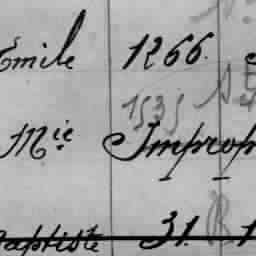 Emile 1266.
1535
Mie Improp
Baptiste 31.